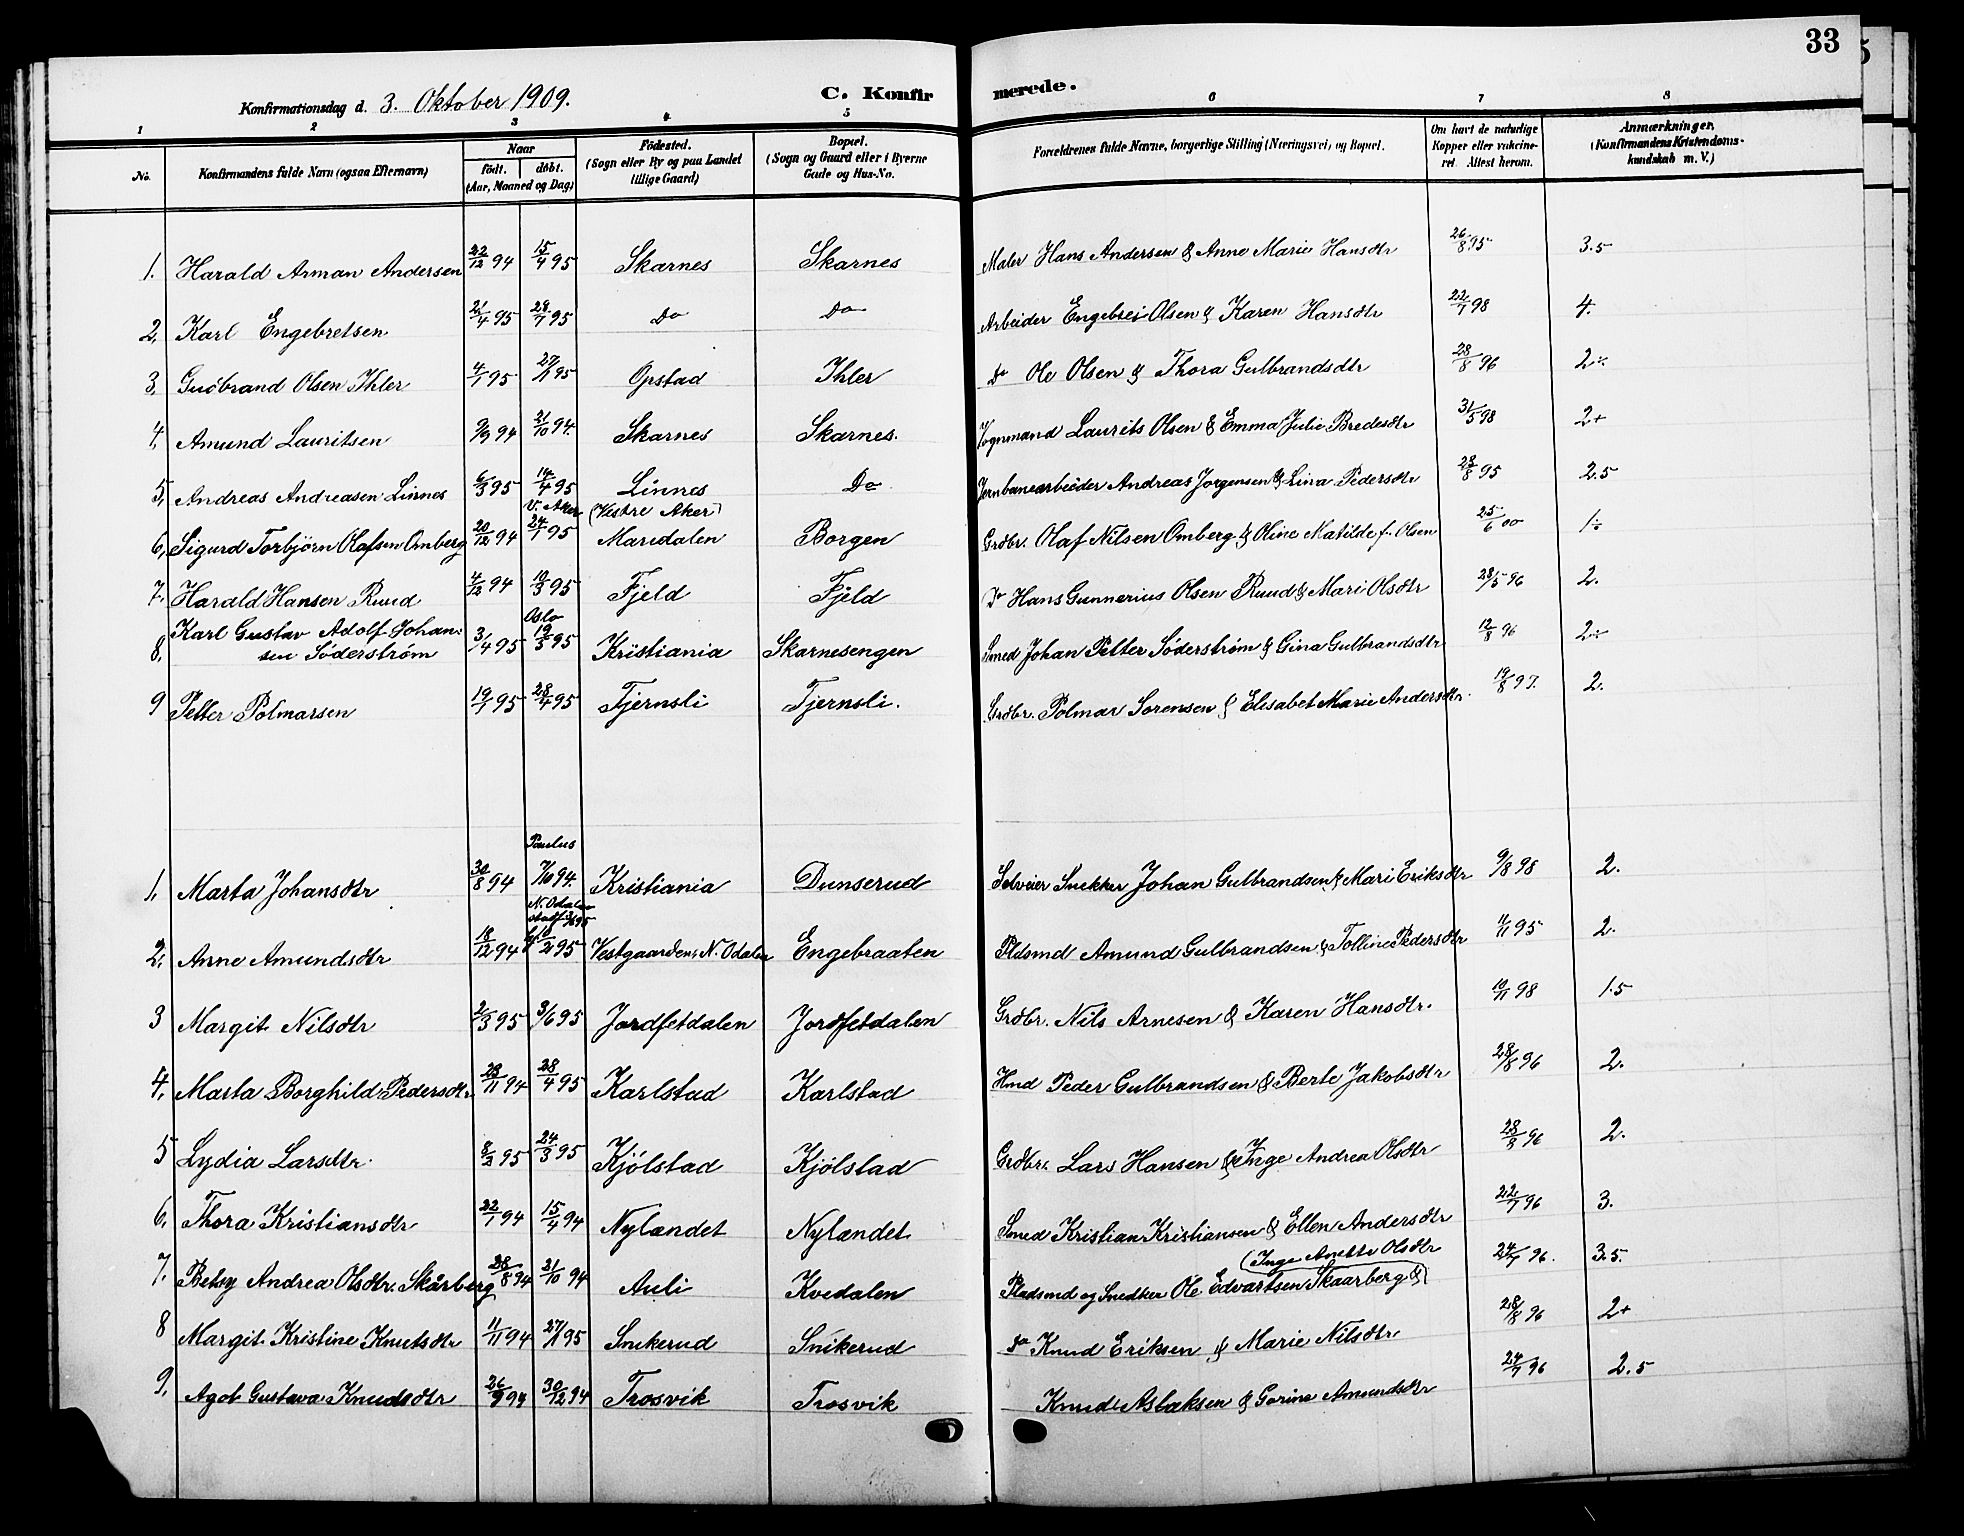 33
Konfirmationsdag d. 3. Oktober 1909. C. Konfirmerede.
1 2 3 4 5 6 7 8
No. Konfirmandens fulde Navn (ogsaa Efternavn) Naar født. døbt. (Aar, Maaned og Dag) Fødested. (Sogn eller By og paa Landet tillige Gaard) Bopæl. (Sogn og Gaard eller i Byerne Gade og Hus-No. Forældrenes fulde Navne, borgerlige Stilling (Næringsvei) og Bopæl. Om havt de naturlige Kopper eller vaccineret. Attest herom. Anmærkninger. (Konfirmandens Kristendomskundskab m. V.)
1. Harald Arman Andersen 22/12 94 15/4 95 Skarnes Skarnes Maler Hans Andersen & Anne Marie Hansdtr 26/8 95 3.5
2, Karl Engebretsen 21/4 95 28/7 95 Do Do Arbeider Engebret Olsen & Karen Hansdtr 22/7 98 4.
3, Gudbrand Olsen Ihler 4/1 95 Opstad Ihler Do Ole Olsen & Thora Gulbrandsdtr 28/8 96 2÷
4, Amund Lauritsen 9/9 94 21/10 94. Skarnes Skarnes. Vognmand Laurits Olsen & Emma Julie Bredesdtr 31/5 98 2+
5, Andreas Andreasen Linnes 6/3 95 14/4 95 Linnes Do Jernbanearbeider Andreas Jorgensen & Lina Pedersdtr 28/8 95 2.5
6, Sigurd Torbjörn Olafsen Omberg 20/12 94 V. Aker 24/1 95 (Vestre Aker) Maridalen Borgen Grdbr. Olaf Nilsen Omberg & Oline Matilde f. Olsen 25/6 00 1÷
7. Harald Hansen Ruud 4/12 94 10/3 95 Fjeld Fjeld Do Hans Gunnerius Olsen Ruud & Mari Olsdtr 28/5 96 2.
8, Karl Gustav Adolf Johansen Söderstrøm 3/4 95 Oslo 19/5 95 Kristiania Skarnesengen Smed Johan Petter Söderstrøm & Gina Gulbrandsdtr 12/8 96 2÷
9 Petter Polmarsen 19/1 95 28/4 95 Tjernsli Tjernsli. Grdbr. Polmar Sorensen & Elisabet Marie Andersdtr. 19/8 97. 2.
1, Marta Johansdtr 30/8 94 Paulus 7/10 94. Kristiania Dunserud Selveier Snekker Johan Gulbrandsen & Mari Eriksdtr 9/8 98 2.
2, Anne Amundsdtr 18/12 94 N. Odalen 95 Vestgaarden, N. Odalen Engebraaten Pldsmd Amund Gulbrandsen & Tolline Pedersdtr 11/11 95 2.
3 Margit Nilsdtr 2/3 95 3/6 95 Jordfetdalen Jordfetdalen Grdbr. Nils Arnesen & Karen Hansdtr. 10/11 98 1.5
4, Marta Borghild Pedersdtr 23/11 94 28/4 95 Karlstad Karlstad Hmd Peder Gulbrandsen & Berte Jakobsdtr 28/8 96 2.
5 Lydia Larsdtr. 8/2 95 24/3 95 Kjölstad Kjölstad Grdbr. Lars Hansen & Inge Andrea Olsdtr 28/8 96 2.
6, Thora Kristiansdtr 22/1 94 15/4 94 Nylandet Nylandet. Smed Kristian Kristiansen & Ellen Andersdtr 22/7 96 3.
7. Betsy Andrea Olsdtr. Skårberg 28/8 94 21/10 94 Auli Kvedalen Pladsmd og Snedker Ole Edvartsen Skaarberg & (Inge Anette Olsdtr) 24/7 96. 3.5.
8 Margit Kristine Knutsdtr 11/11 94 27/1 95 Snikerud Snikerud Do Knud Eriksen & Marie Nilsdtr. 28/8 96 2+
9, Agot Gustava Knudsdtr 26/9 94 30/12 94 Trosvik Trosvik Knud Aslaksen & Gorine Amundsdtr 24/7 96 2.5